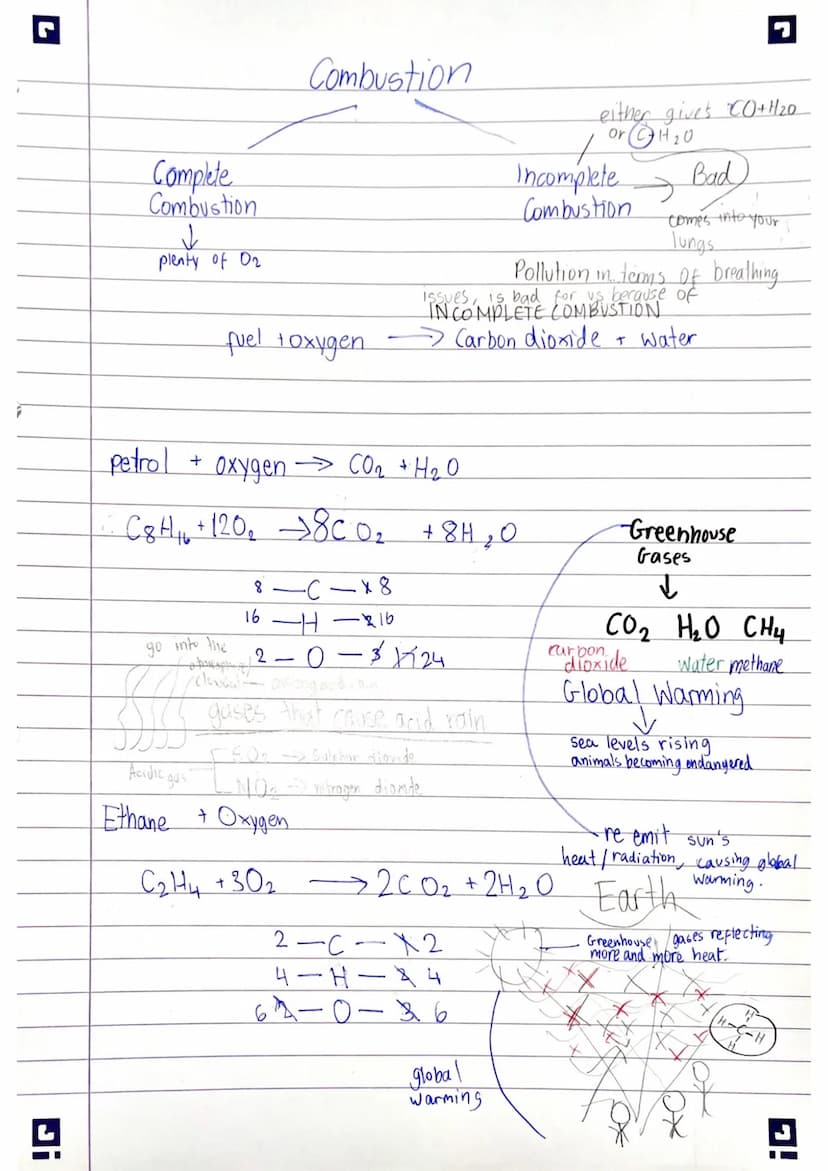 Combustion
either gives CO+H2O
or C+H2O
Complete
Combustion
plenty of O2
Incomplete
Combustion
Bad
comes into your
lungs
Pollution in terms of breathing
issues, is bad for us because of
INCOMPLETE COMBUSTION
fuel + oxygen → Carbon dioxide + Water
petrol + oxygen → CO2 + H2O
∴ C8H16 + 12O2 → 8CO2 + 8H2O
8 — C — 1 8
16 — H — 2 16
2 — O — 3 24
go into the
gases that cause acid rain
Acidic gas
SO2 → Sulphur dioxide
NO2 → nitrogen dioxide
Greenhouse
Gases
CO2 H2O CH4
carbon
dioxide
water methane
Global Warming
sea levels rising
animals becoming endangered
re emit sun's
heat/radiation, causing global
warming.
Ethane + Oxygen
C2H4 + 3O2 → 2CO2 + 2H2O
2 — C — 1 2
4 — H — 2 4
6 2 — O — 3 6
Earth
Greenhouse gases reflecting
more and more heat.
H
H-C-H
H
global
warming